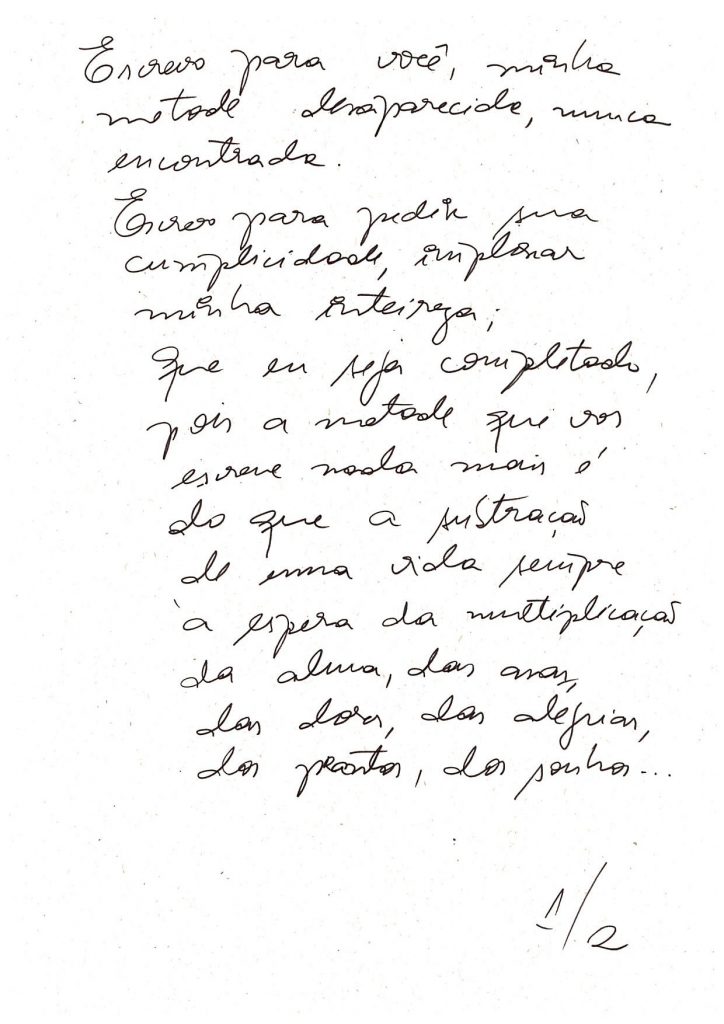 Escrevo para você, minha
metade desaparecida, nunca
encontrada.
Escrevo para pedir sua
cumplicidade, implorar
minha inteireza;
que eu seja completado,
pois a metade que vos
escreve nada mais é
do que a subtração
de uma vida sempre
à espera da multiplicação
da alma, das asas,
das dores, das alegrias,
dos prantos, dos sonhos...
1/2